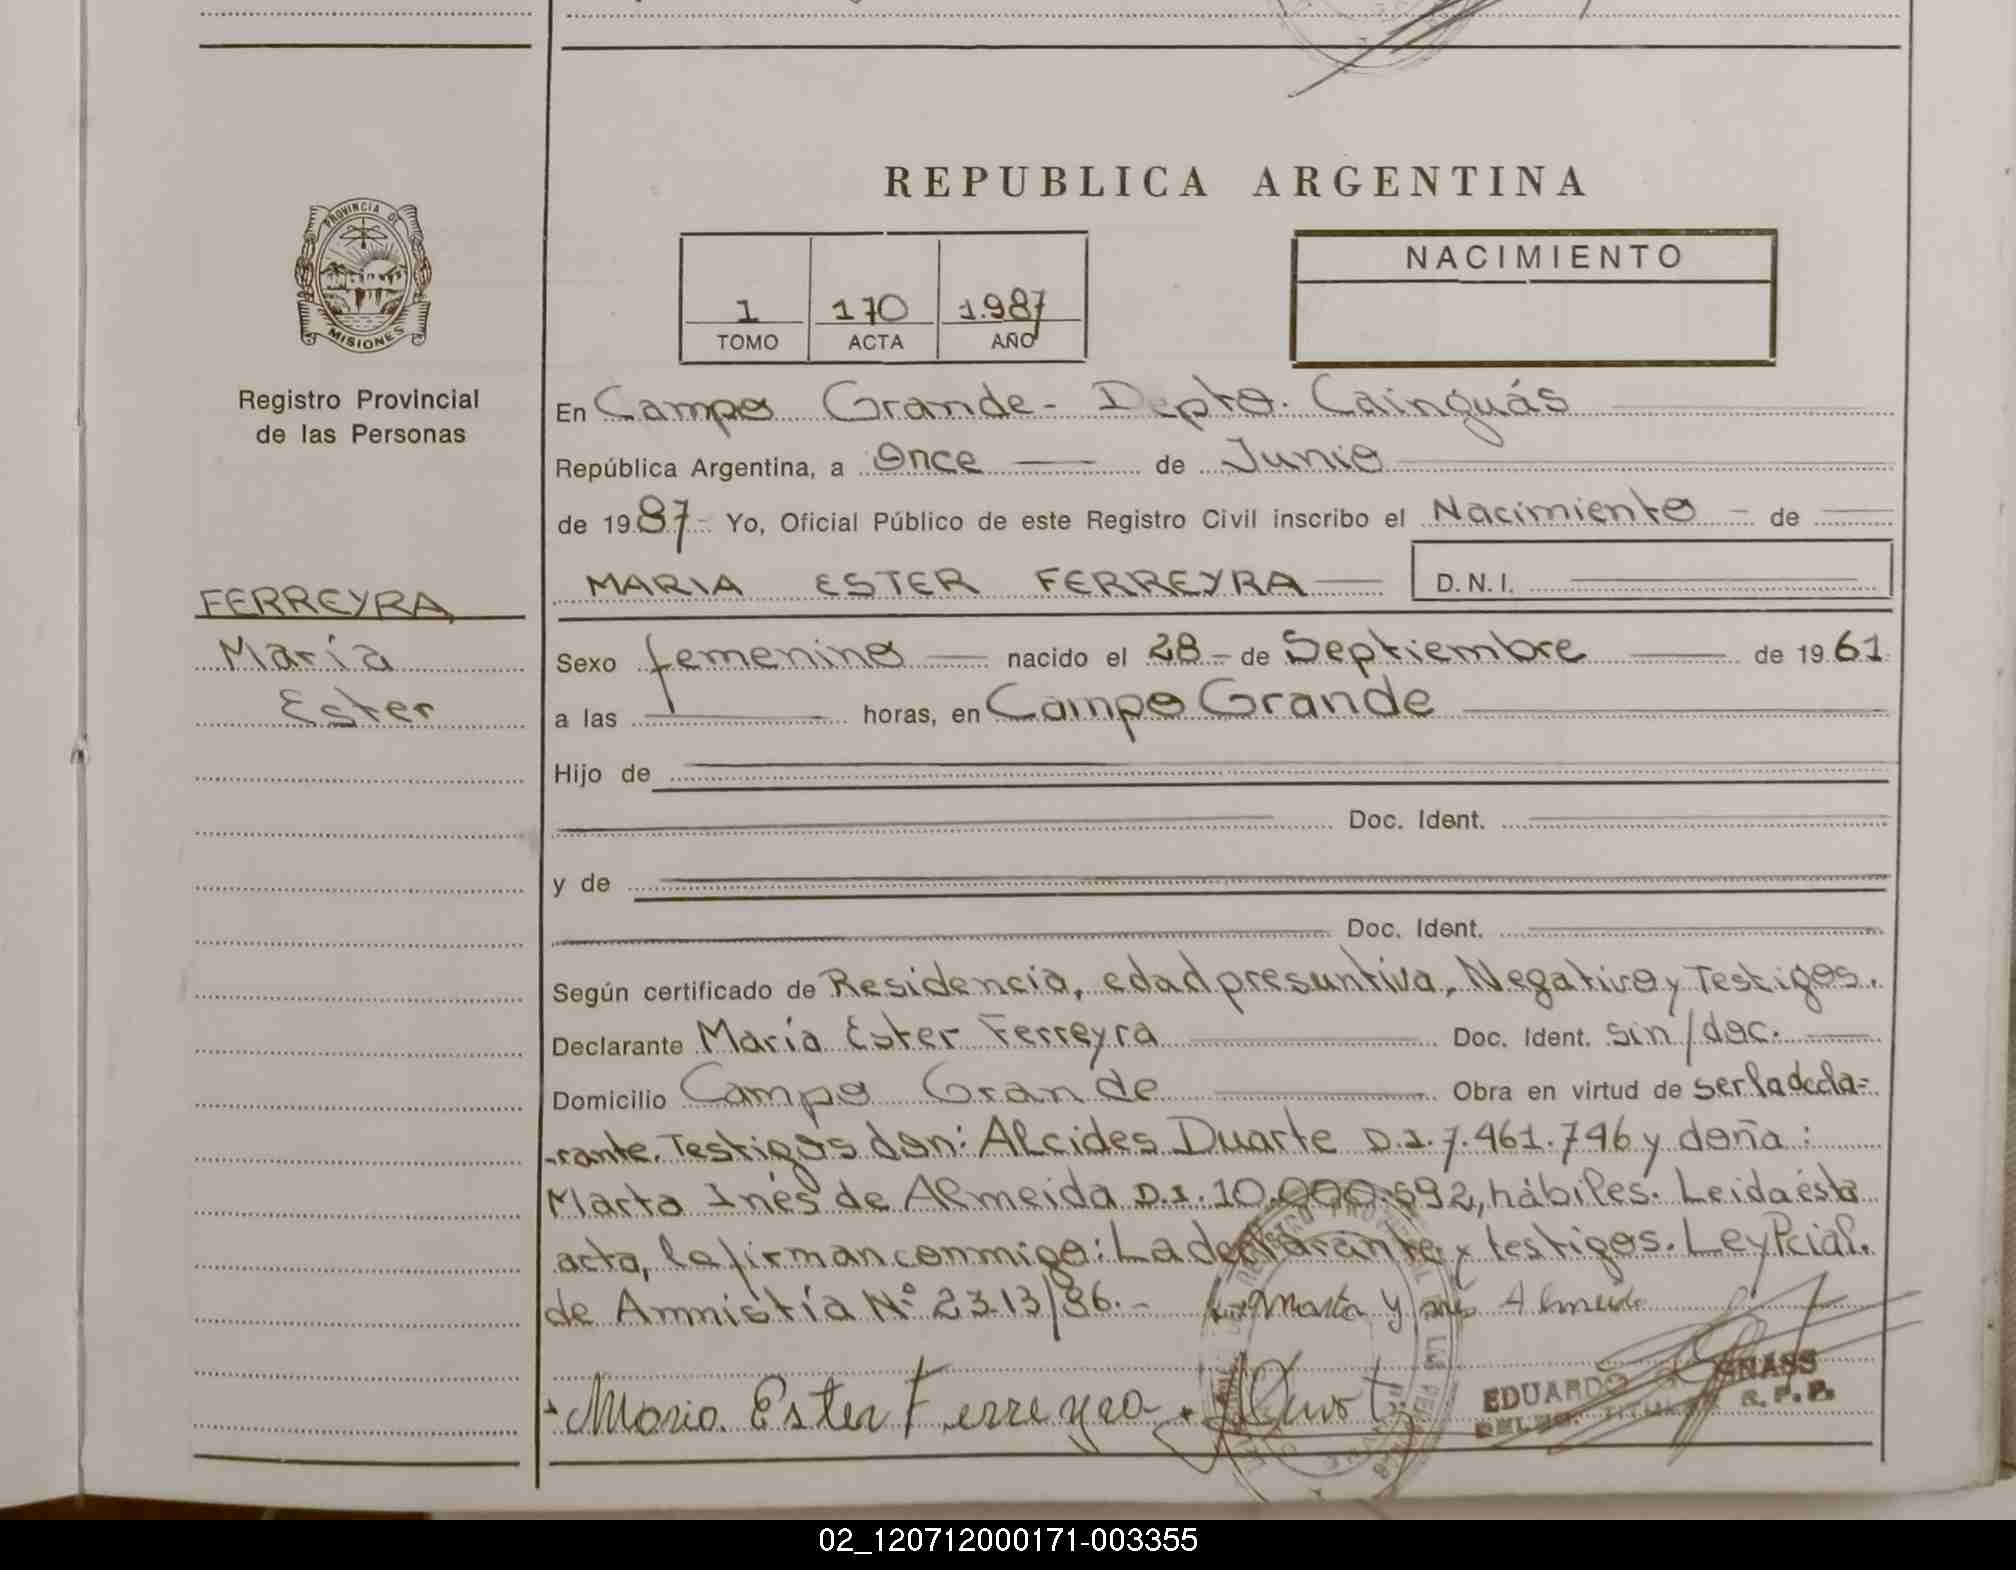 REPUBLICA ARGENTINA
PROVINCIA DE
MISIONES
Registro Provincial
de las Personas
1 170 1.987
TOMO ACTA AÑO
NACIMIENTO
En Campo Grande - Depto. Cainguás
República Argentina, a Once de Junio
de 1987- Yo, Oficial Público de este Registro Civil inscribo el Nacimiento - de
MARIA ESTER FERREYRA D.N.I.
FERREYRA
María
Ester
Sexo femenino nacido el 28 - de Septiembre de 1961
a las horas, en Campo Grande
Hijo de
Doc. Ident.
y de
Doc. Ident.
Según certificado de Residencia, edad presuntiva, Negativo y Testigos.
Declarante María Ester Ferreyra Doc. Ident. sin/doc.
Domicilio Campo Grande Obra en virtud de ser la decla-
-rante. Testigos don: Alcides Duarte D.I. 7.461.746 y doña:
Marta Inés de Almeida D.I. 10.000.592, hábiles. Leida ésta
acta, la firman conmigo: La declarante y testigos. Ley Pcial.
de Amnistía Nº 2313/86.-
Maria Ester Ferreyra
EDUARDO
R.P.P.
02_120712000171-003355